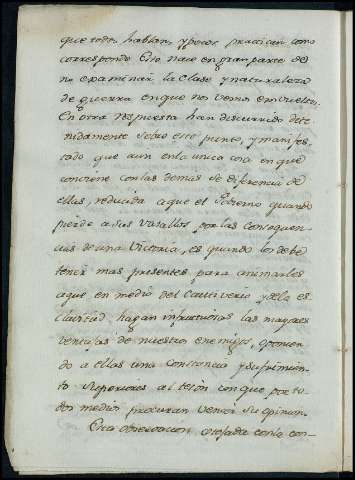 que todos hablan, y pocos practican como
corresponde. Esto nace en gran parte de
no examinar la Clase y naturaleza
de guerra en que nos vemos envueltos.
En otra respuesta han discurrido dete-
nidamente sobre este punto, y manifes-
tado que aun en la unica cosa en que
conviene con las demas se diferencia de
ellas, reducida a que el Govierno quando
pierde a sus vasallos, por las consequen-
cias de una Victoria, es quando los debe
tener mas presentes para animarles
a que en medio del Cautiverio y de la es-
clavitud hagan infructuosas las mayores
ventajas de nuestros enemigos, oponien-
do a ellas una constancia y sufrimien-
to superiores al teson con que por to-
dos medios procuran vencer su opinion.
Esta observacion cotejada con la con-